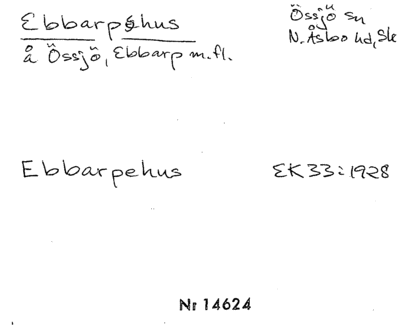 Ebbarpehus
Össjö sn
å Össjö, Ebbarp m.fl.
N. Åsbo hd, Sk
Ebbarpehus
EK33:1928
Nr 14624